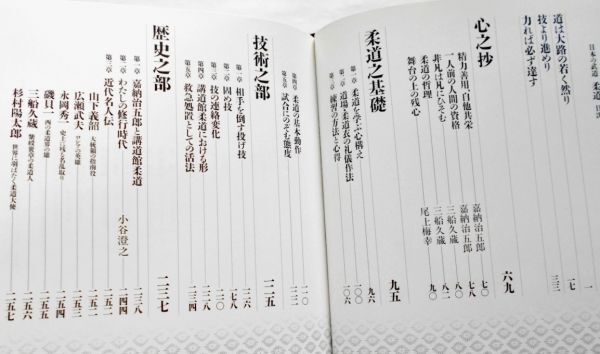 日本の武道 柔道
道は大路の若く然り
技より進めり 一七
力れば必ず達す 三二
心之抄 六九
精力善用、自他共栄 嘉納治五郎 七〇
一人前の人間の資格 嘉納治五郎 七八
非凡は凡にひそむ 三船久蔵 八二
柔道の哲理 三船久蔵 八八
舞台の上の残心 尾上梅幸 九〇
柔道之基礎 九五
第一章 柔道を学ぶ心構え 九六
第二章 道場と柔道衣の礼儀作法
第三章 練習の方法と心得 一〇六
第四章 柔道の基本動作 一一〇
第五章 試合にのぞむ態度 一二二
技術之部 一二五
第一章 相手を倒す投げ技 一二六
第二章 固め技 一七八
第三章 技の連絡変化
第四章 講道館柔道における形
第五章 救急処置としての活法
歴史之部 二三七
第一章 嘉納治五郎と講道館柔道 二三八
第二章 わたしの修行時代 小谷澄之 二四四
第三章 近代名人伝 二五二
山下義韶 大統領の指南役 二五二
広瀬武夫 ロシアの英雄
永岡秀一 史上に残る名乱取り
磯貝一 西の柔道界の雄
三船久蔵 柔道人 二五六
杉村陽太郎 世界に羽ばたく柔道大使 二五七